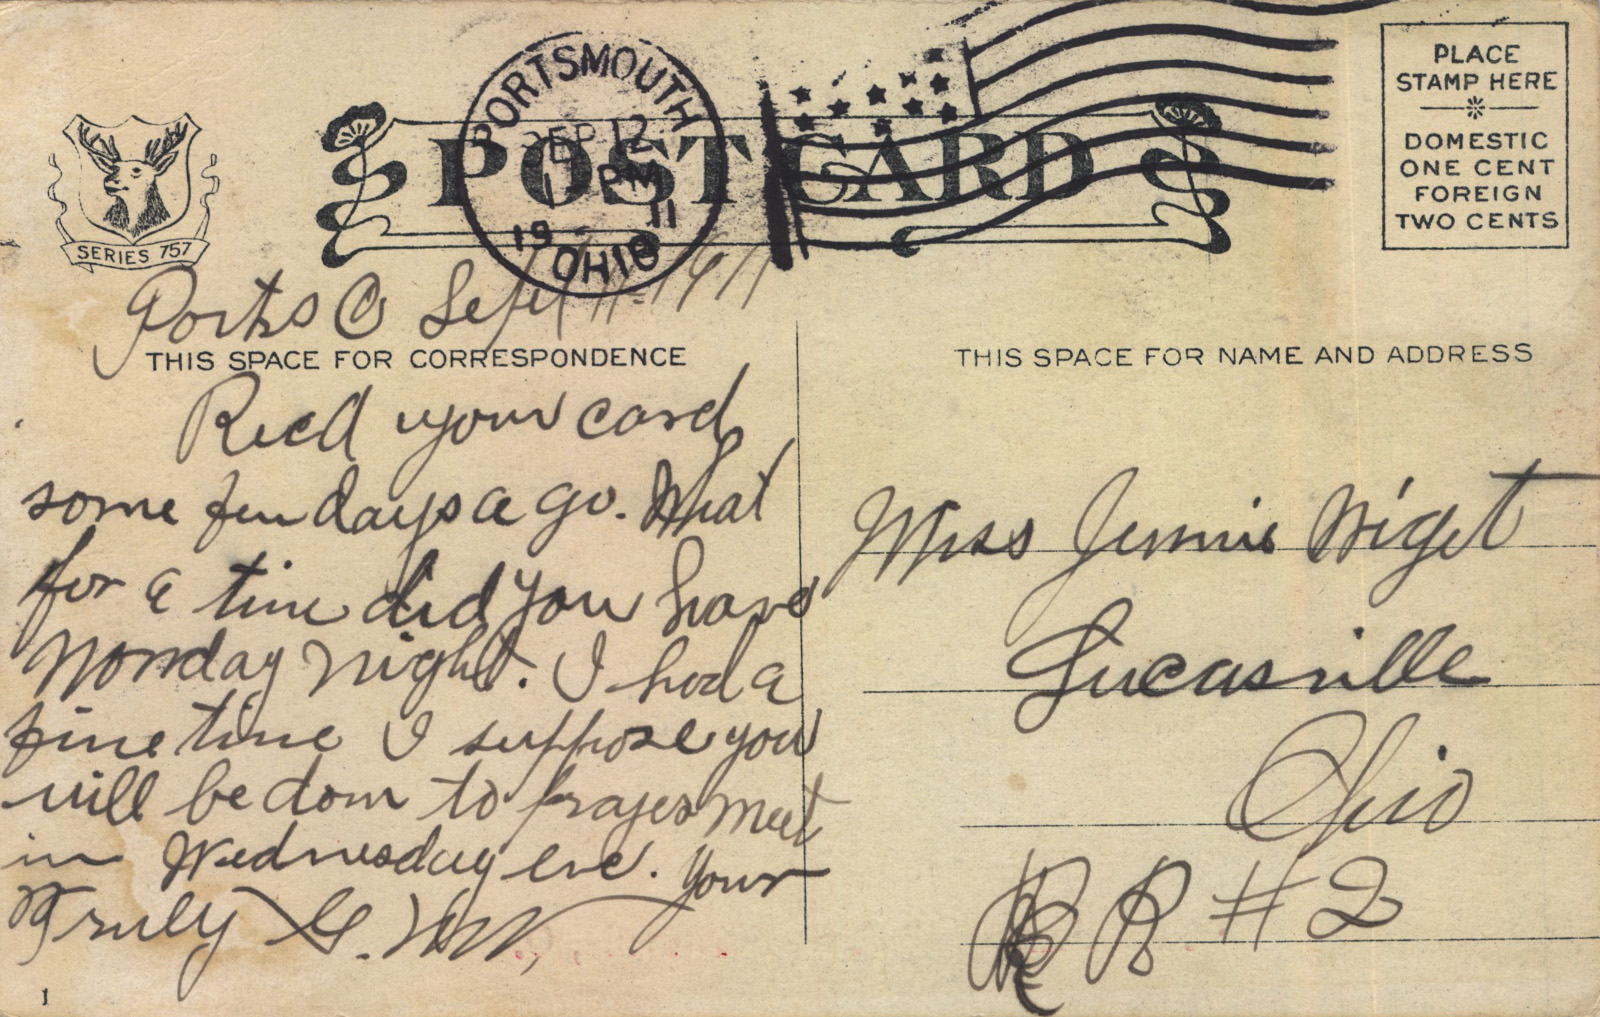 PORTSMOUTH
SEP 12
1 PM
19 11
OHIO
POST CARD
PLACE
STAMP HERE
DOMESTIC
ONE CENT
FOREIGN
TWO CENTS
SERIES 757
Ports O Sept 11-1911
THIS SPACE FOR CORRESPONDENCE
Recd your card
some few days a go. What
for a time did you have
Monday night. I had a
fine time I suppose you
will be dow to prayer meet
in Wednesday eve. Your
Truly G.
1
THIS SPACE FOR NAME AND ADDRESS
Miss Jennie Wiget
Lucasville
Ohio
R R # 2